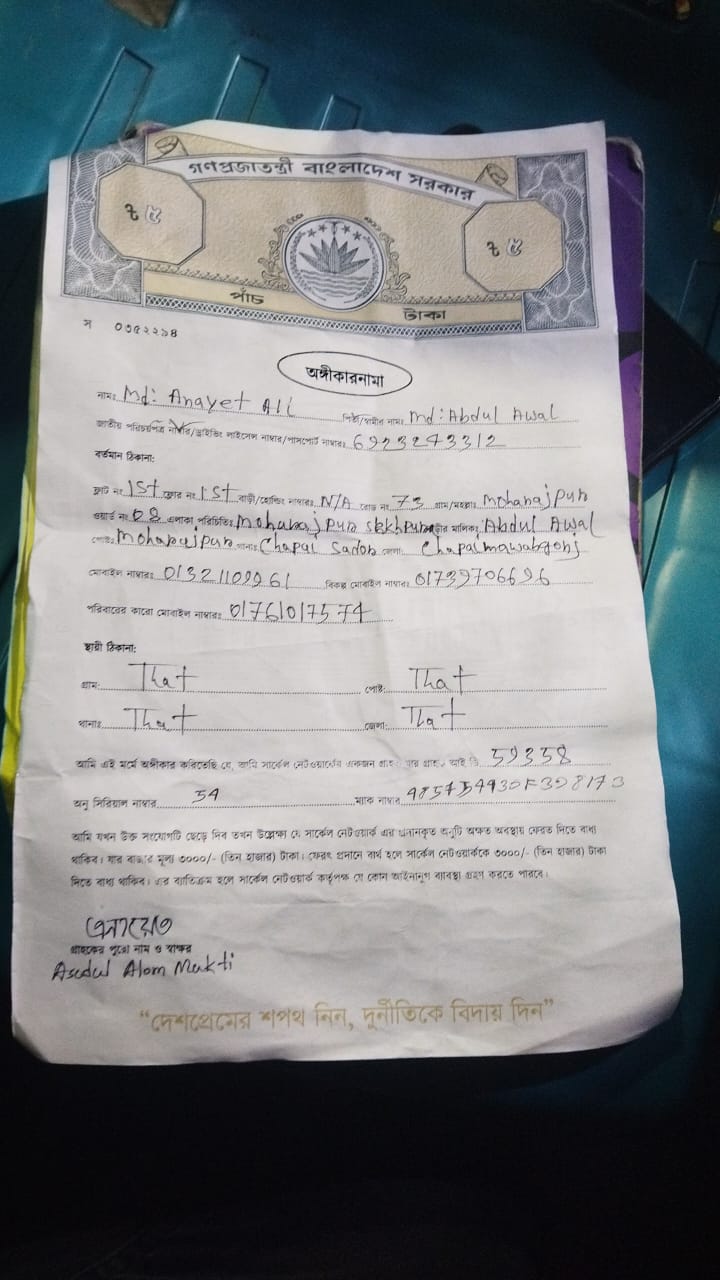 গণপ্রজাতন্ত্রী বাংলাদেশ সরকার
৳ ৫ ৳ ৫
পাঁচ টাকা
স ০৩৫২২৯৪
অঙ্গীকারনামা
নামঃ Md: Anayet Ali পিতা/স্বামীর নামঃ Md: Abdul Awal
জাতীয় পরিচয়পত্র নাম্বার/ড্রাইভিং লাইসেন্স নাম্বার/পাসপোর্ট নাম্বারঃ 6923243312
বর্তমান ঠিকানা:
ফ্লাট নং 1St ফ্লোর নং 1St বাড়ী/হোল্ডিং নাম্বারঃ N/A রোড নং 73 গ্রাম/মহল্লাঃ Mohanajpur
ওয়ার্ড নং 08 এলাকা পরিচিতিঃ Moharajpur বাড়ীর মালিকঃ Abdul Awal
পোষ্টঃ Moharajpur থানাঃ Chapai Sador জেলাঃ Chapainawabgonj
মোবাইল নাম্বারঃ 01321109961 বিকল্প মোবাইল নাম্বারঃ 01739706696
পরিবারের কারো মোবাইল নাম্বারঃ 01761017574
স্থায়ী ঠিকানা:
গ্রাম: That পোষ্ট: That
থানাঃ That জেলা: That
আমি এই মর্মে অঙ্গীকার করিতেছি যে, আমি সার্কেল নেটওয়ার্কের একজন গ্রাহক যার গ্রাহক আই ডি 59358
অনু সিরিয়াল নাম্বার 54 ম্যাক নাম্বার
আমি যখন উক্ত সংযোগটি ছেড়ে দিব তখন উল্লেক্ষ্য যে সার্কেল নেটওয়ার্ক এর প্রদানকৃত অনুটি অক্ষত অবস্থায় ফেরত দিতে বাধ্য
থাকিব। যার বাজার মূল্য ৩০০০/- (তিন হাজার) টাকা। ফেরৎ প্রদানে ব্যর্থ হলে সার্কেল নেটওয়ার্ককে ৩০০০/- (তিন হাজার) টাকা
দিতে বাধ্য থাকিব। এর ব্যতিক্রম হলে সার্কেল নেটওয়ার্ক কর্তৃপক্ষ যে কোন আইনানুগ ব্যবস্থা গ্রহণ করতে পারবে।
এনায়েত
গ্রাহকের পুরো নাম ও স্বাক্ষর
Asadul Alom Mukti
“দেশপ্রেমের শপথ নিন, দুর্নীতিকে বিদায় দিন”